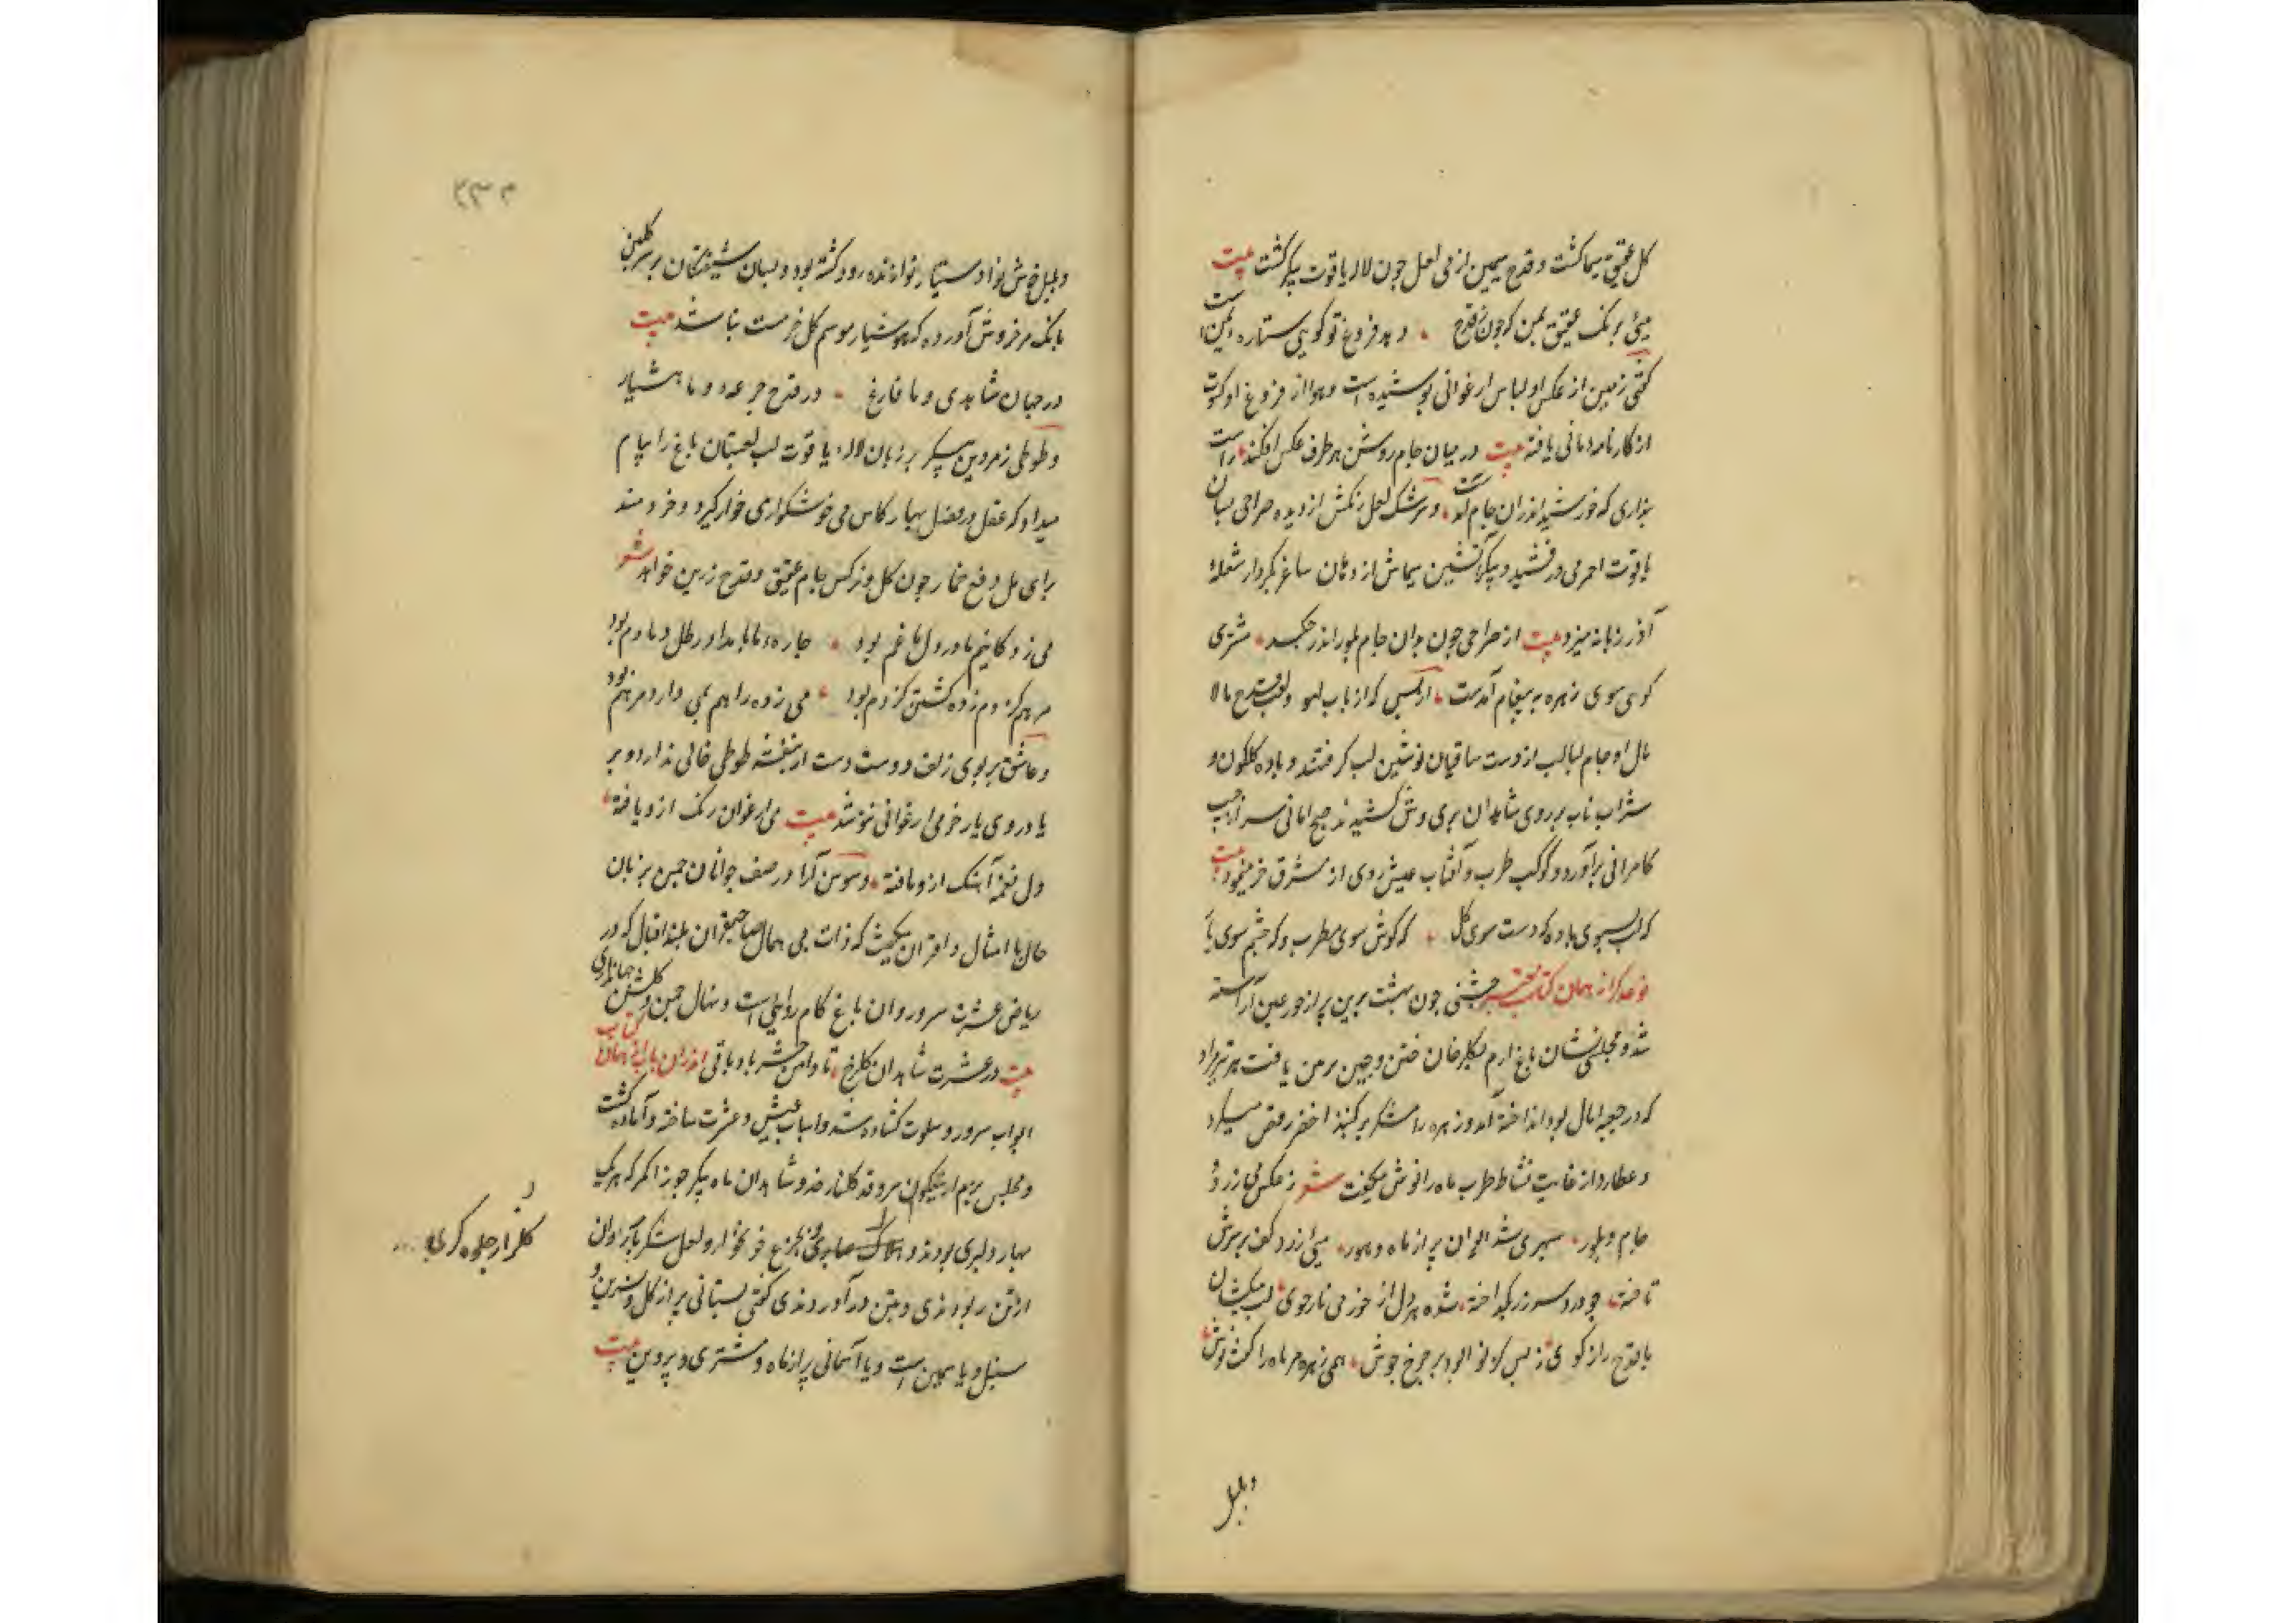 گل عقیق سیما گشت و قدح سیمین از می لعل چون لاله یاقوت پیکر گشت بیت
میی برنگ عقیق یمن که چون ز قدح دهد فروغ تو گویی ستاره یمن است
گفتی زمین از عکس او لباس ارغوانی پوشیده است و هوا از فروغ او کسوت
از کارنامه مانی یافته بیت در میان جام روشن هر طرف عکس افکند راست
پنداری که خورشید اندران جام آمدست و سرشک لعل رنگش از دیده صراحی بسان
یاقوت احمر می درفشید و پیکر آتشین سیماش از دهان ساغر بکردار شعله
آذر زبانه میزد بیت از صراحی چون بدان جام بلور اندر چکد مشتری
گوی سوی زهره به پیغام آمدست ارباب لهو و لعب قدح مالا
مال و جام لبالب از دست ساقیان نوشین لب گرفتند و باده گلگون و
شراب ناب بر روی شاهدان پری وش کشیدند صبح امانی سر از جیب
کامرانی برآورد و کوکب طرب و آفتاب عیش روی از مشرق خرمی نمود بیت
که لب سوی باده که دست سوی گل که گوش سوی مطرب و که چشم سوی یار
نوعدیگر از همان کتاب جشنی چون بهشت برین پر از حور عین آراسته
شد و مجلسی نشان باغ ارم بگلرخان ختن و چین یافت هر تیر مراد
که در جعبه امال بود انداخته آمد و زهره رامشگر بر گنبد اخضر رقص میکرد
و عطارد از غایت نشاط و طرب ماه را نوش میگفت شعر ز عکس می زرد و
جام بلور سپهری شد ایوان پر از ماه و هور می زرد کف بر سرش
تاخته چو در و سر زر بگداخته شده هر دل از خرمی نازجوی لب میکشان
با قدح رازگوی ز بس کز نوا بود بر چرخ جوش همی زهره مر ماه را گفت نوش
و بلبل
۲۳۲
و بلبل خوش نوا دستیار نوازنده رود گشته بود و بسان شیفتگان بر سر گلبن
بانک بر خروش آورده که هوشیار موسم گل خر مست نباشد بیت
در جهان شاهدی و ما فارغ در قدح جرعه و ما هشیار
و طوطی زمردین پیکر بزبان لاله یاقوت لب لعبتان باغ را پیام
میداد که عقل در فصل بهار کاس می خوشگواری خوار گیرد و خردمند
برای مل دفع خمار چون گل و نرگس جام عقیق و قدح زرین خواهد شعر
می زدگانیم ما در دل ما غم بود چاره ما بامداد رطل دمادم بود
مرهم کژدم زده کشتن کژدم بود می زده را هم بمی دارو مرهم بود
و عاشق بر بوی زلف دوست دست از بنفشه طوطی خالی ندارد و بر
یاد روی یار خرمی ارغوانی نوشد بیت می ارغوان رنگ ازو یافته
دل نغمه آهنگ ازو یافته و سوسن آزاد در صف جوانان چمن بزبان
حال با امثال و اقران میگفت که ذات بی همال صاحبقران بلند اقبال که در
ریاض عشرت سرو روان باغ کام روایی است و نهال چمن و گلشن جهانداری
بیت در عشرت شاهدان گلرخ تا دامن حشر باد باقی اندران باب از همان کتاب
ابواب سرور و سلوت گشاده شد و اسباب عیش و عشرت ساخته و آماده گشت
و مجلس بزم از نیکوان سرو قد گلنار خد و شاهدان ماه پیکر جوزا کمر که هر یک
بهار دلبری بودند و صابری بجزع خونخوار و لعل شکربار روان
از تن ربودندی و بتن درآوردندی گفتی بستانی پر از گل و نسرین و
سنبل و یاسمین است و یا آسمانی پر از ماه و مشتری و پروین بیت
گلزار جلوه گری